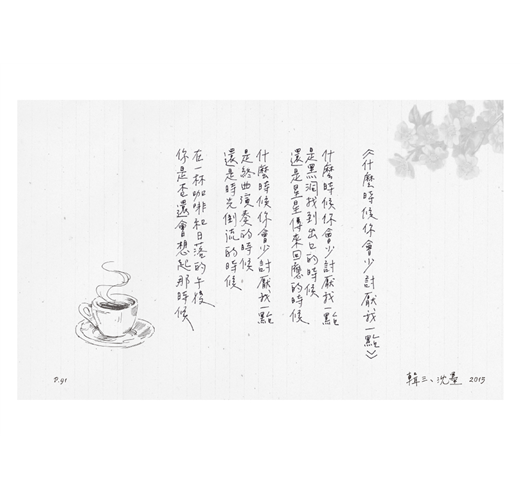 《什麼時候你會少討厭我一點》
什麼時候你會少討厭我一點
是黑洞找到出口的時候
還是星星傳來回應的時候
什麼時候你會少討厭我一點
是終曲演奏的時候
還是時光倒流的時候
在一杯咖啡和日落的午後
你是否還會想起那時候
P.91
韓三、沈墨 2015